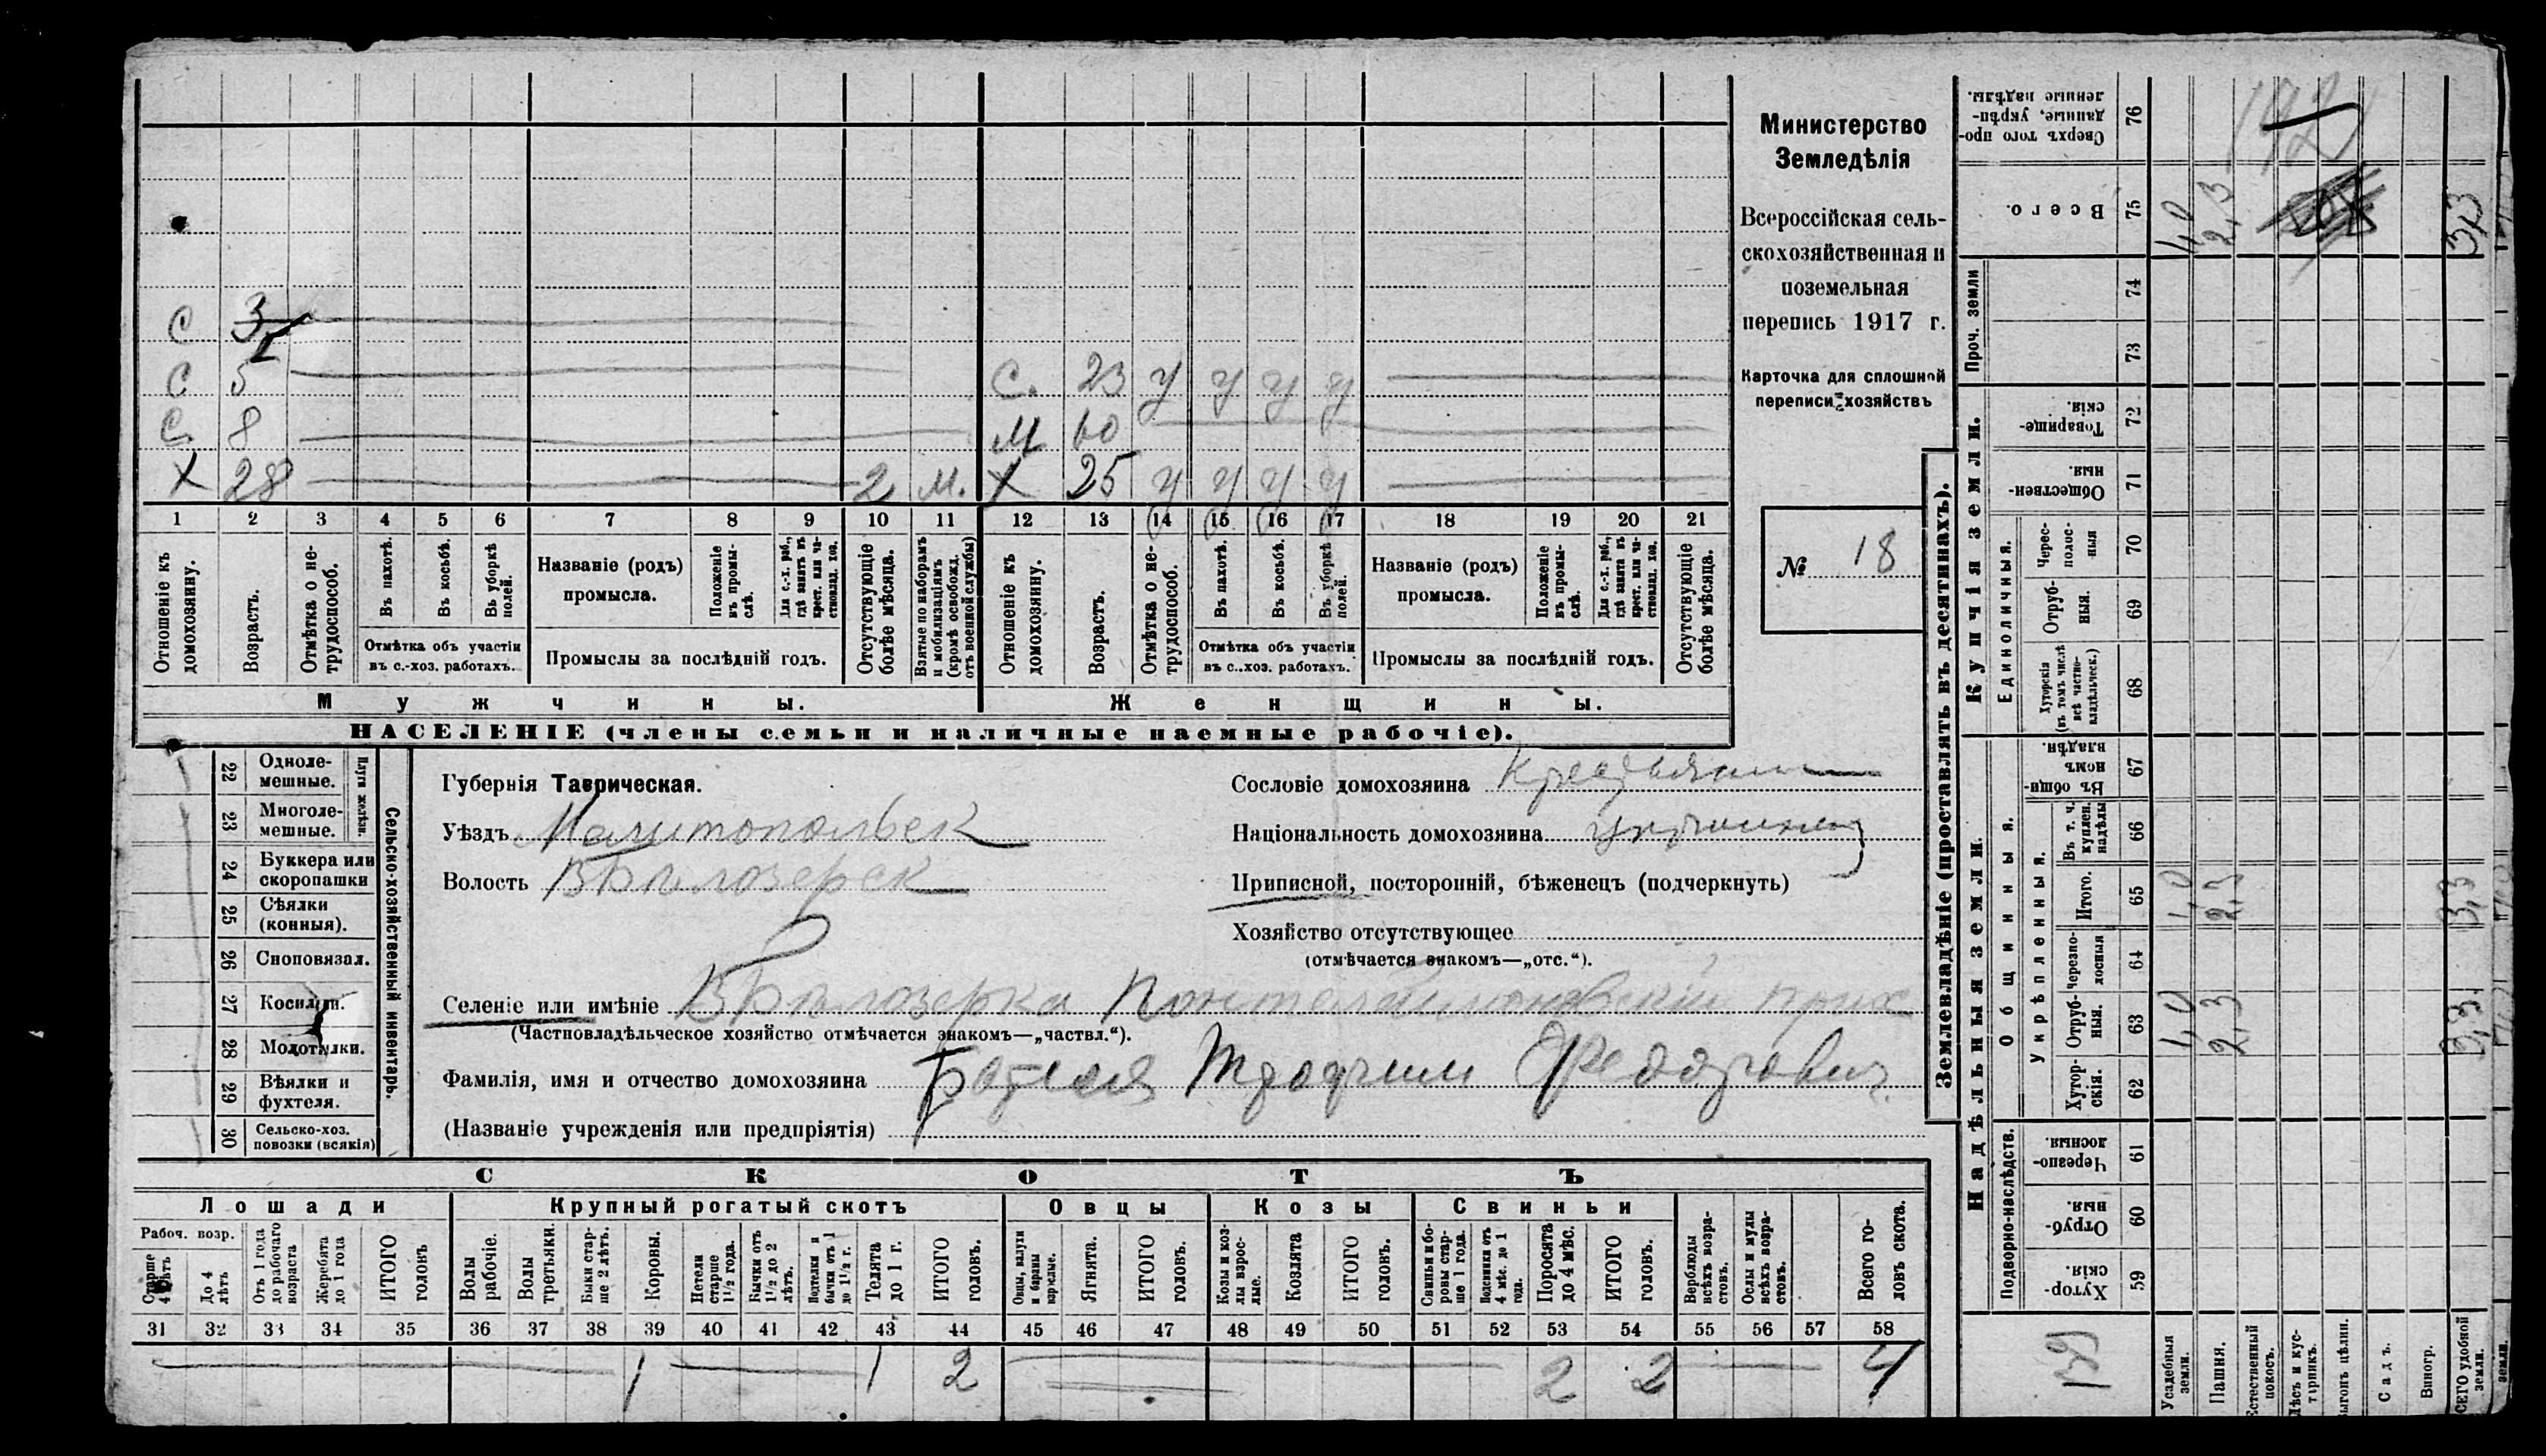 Министерство
Земледѣлія
Всероссійская сель-
скохозяйственная и
поземельная
перепись 1917 г.
Карточка для сплошной
переписи хозяйствъ
№ 18
С 3
С 5
С. 23 у у у у
С 8
М 60
Х 28 2 м. Х 25 у у у у
1 2 3 4 5 6 7 8 9 10 11 12 13 14 15 16 17 18 19 20 21
Отношеніе къ домохозяину.
Возрастъ.
Отмѣтка о не-трудоспособ.
Въ пахотѣ.
Въ косьбѣ.
Въ уборкѣ полей.
Отмѣтка объ участіи
въ с.-хоз. работахъ.
Названіе (родъ)
промысла.
Положеніе въ промы-слѣ.
Для с.-х. раб., гдѣ занятъ въ крест. или ча-стновлад. хоз.
Промыслы за послѣдній годъ.
Отсутствующіе болѣе мѣсяца.
Взятые по наборамъ и мобилизаціямъ (кромѣ освобожд. отъ военной службы)
Отношеніе къ домохозяину.
Возрастъ.
Отмѣтка о не-трудоспособ.
Въ пахотѣ.
Въ косьбѣ.
Въ уборкѣ полей.
Отмѣтка объ участіи
въ с.-хоз. работахъ.
Названіе (родъ)
промысла.
Положеніе въ промы-слѣ.
Для с.-х. раб., гдѣ занята въ крест. или ча-стновлад. хоз.
Промыслы за послѣдній годъ.
Отсутствующіе болѣе мѣсяца.
Мужчины. Женщины.
НАСЕЛЕНІЕ (члены семьи и наличные наемные рабочіе).
22 Одноле-мешные.
23 Многоле-мешные.
Плуги желѣзн.
24 Буккера или скоропашки
25 Сѣялки (конныя).
26 Сноповязал.
27 Косилки.
28 Молотилки.
29 Вѣялки и фухтеля.
30 Сельско-хоз. повозки (всякія)
Сельско-хозяйственный инвентарь.
Губернія Таврическая.
Уѣздъ Мелитопольск
Волость В Бѣлозерск
Сословіе домохозяина Крестьянин
Національность домохозяина украинец
Приписной, посторонній, бѣженецъ (подчеркнуть)
Хозяйство отсутствующее
(отмѣчается знакомъ—„отс.“).
Селеніе или имѣніе В Бѣлозерка Пантелеймоновскій прих
(Частновладѣльческое хозяйство отмѣчается знакомъ—„частвл.“).
Фамилія, имя и отчество домохозяина Трофим Федорович
(Названіе учрежденія или предпріятія)
СКОТЪ
Лошади Крупный рогатый скотъ Овцы Козы Свиньи
Рабоч. возр.
Старше 4 лѣтъ
До 4 лѣтъ
Отъ 1 года до рабочаго возраста
Жеребята до 1 года
ИТОГО головъ
Волы рабочіе.
Волы третьяки.
Быки стар-ше 2 лѣтъ.
Коровы.
Нетели старше 1½ года.
Бычки отъ 1½ до 2 лѣтъ.
Нетелки и бычки отъ 1 до 1½ г.
Телята до 1 г.
ИТОГО головъ.
Овцы, валухи и бараны взрослые.
Ягнята.
ИТОГО головъ.
Козы и коз-лы взрос-лые.
Козлята
ИТОГО головъ.
Свиньи и бо-ровы стар-ше 1 года.
Подсвинки отъ 4 мѣс. до 1 года.
Поросята до 4 мѣс.
ИТОГО головъ.
Верблюды всѣхъ возра-стовъ.
Ослы и мулы всѣхъ возра-стовъ.
Всего го-ловъ скота.
31 32 33 34 35 36 37 38 39 40 41 42 43 44 45 46 47 48 49 50 51 52 53 54 55 56 57 58
1 1 2 2 2 4
Землевладѣніе (проставлять въ десятинахъ).
Надѣльныя земли. Купчія земли. Проч. земли
Подворно-наслѣдств.
Общинныя.
Укрѣпленныя.
Единоличныя.
Сверхъ того про-данные, укрѣп-ленные надѣлы. 76
Всего. 75 1,0 2,3 3,3
74
73
Товарище-скія. 72
Обществен-ныя. 71
Черес-полос-ныя 70
Отруб-ныя. 69
Хуторскія (въ томъ числѣ всѣ частно-владѣльческ.) 68
Въ общин-номъ владѣн. 67
Въ т. ч. куплен. надѣлы 66
Итого. 65 1,0 2,3 3,3
Черезпо-лосныя 64
Отруб-ныя. 63 1,0 2,3 3,3
Хутор-скія. 62
Черезпо-лосныя. 61
Отруб-ныя. 60
Хутор-скія. 59
Усадебныя земли.
Пашня.
Естественный покосъ.
Лѣсъ и кус-тарникъ.
Выгонъ цѣлин.
Садъ.
Виногр.
ВСЕГО удобной земли.